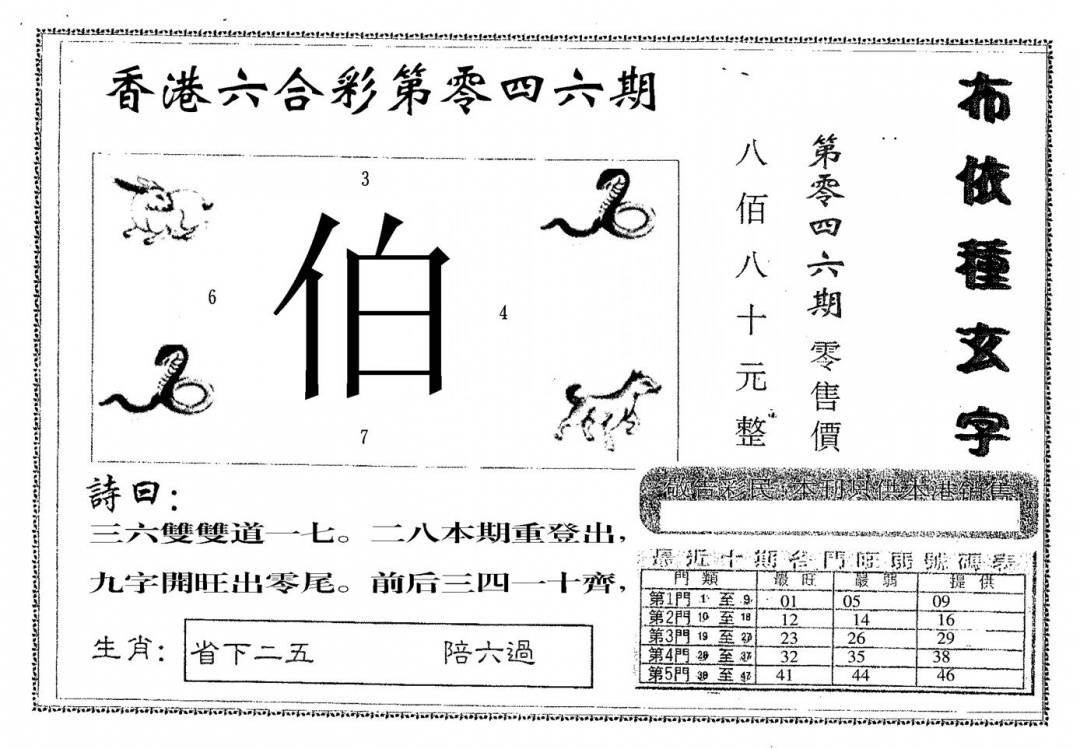 香港六合彩第零四六期
布依種玄字
第零四六期零售價
八佰八十元整
3
6
伯
4
7
詩曰：
三六雙雙道一七。二八本期重登出，
九字開旺出零尾。前后三四一十齊，
生肖：省下二五 陪六過
敬告彩民：本刊只供本港銷售
最近十期各門旺弱號碼表
門類 最旺 最弱 提供
第1門 1 至 9 01 05 09
第2門 10 至 18 12 14 16
第3門 19 至 27 23 26 29
第4門 28 至 37 32 35 38
第5門 38 至 47 41 44 46